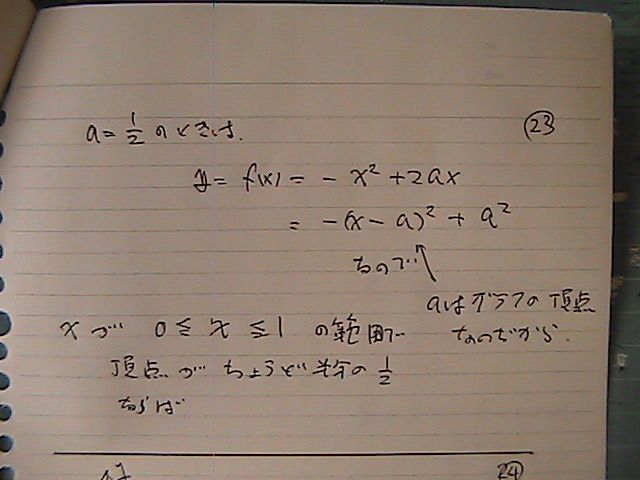 ㉓
a = 1/2 のときは、
y = f(x) = - x² + 2ax
= -(x - a)² + a²
なので
aはグラフの頂点
なのだから、
xが 0 ≦ x ≦ 1 の範囲で
頂点がちょうど半分の 1/2
ならば
㉔